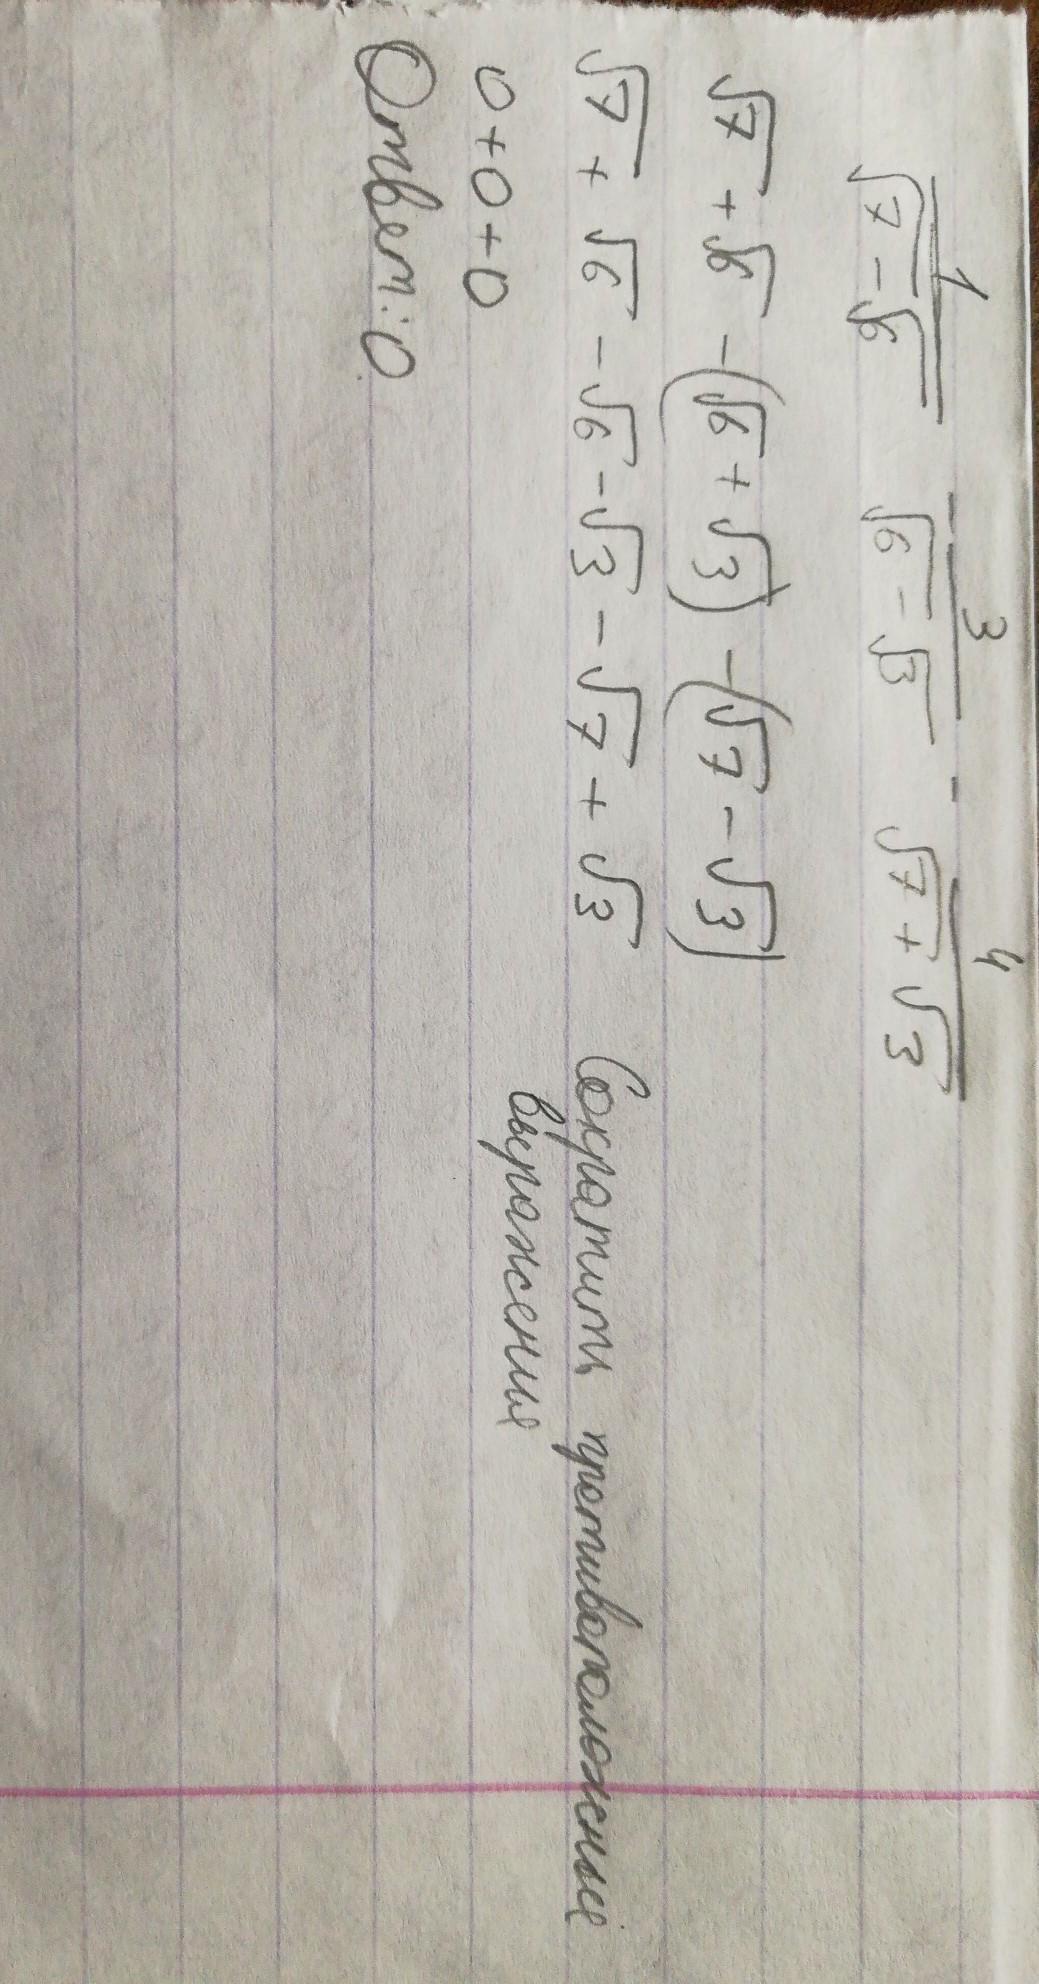 1/(√7 − √6) − 3/(√6 − √3) − 4/(√7 + √3)
√7 + √6 − (√6 + √3) − (√7 − √3)
√7 + √6 − √6 − √3 − √7 + √3 Сократить противоположные
выражения
0+0+0
Ответ: 0